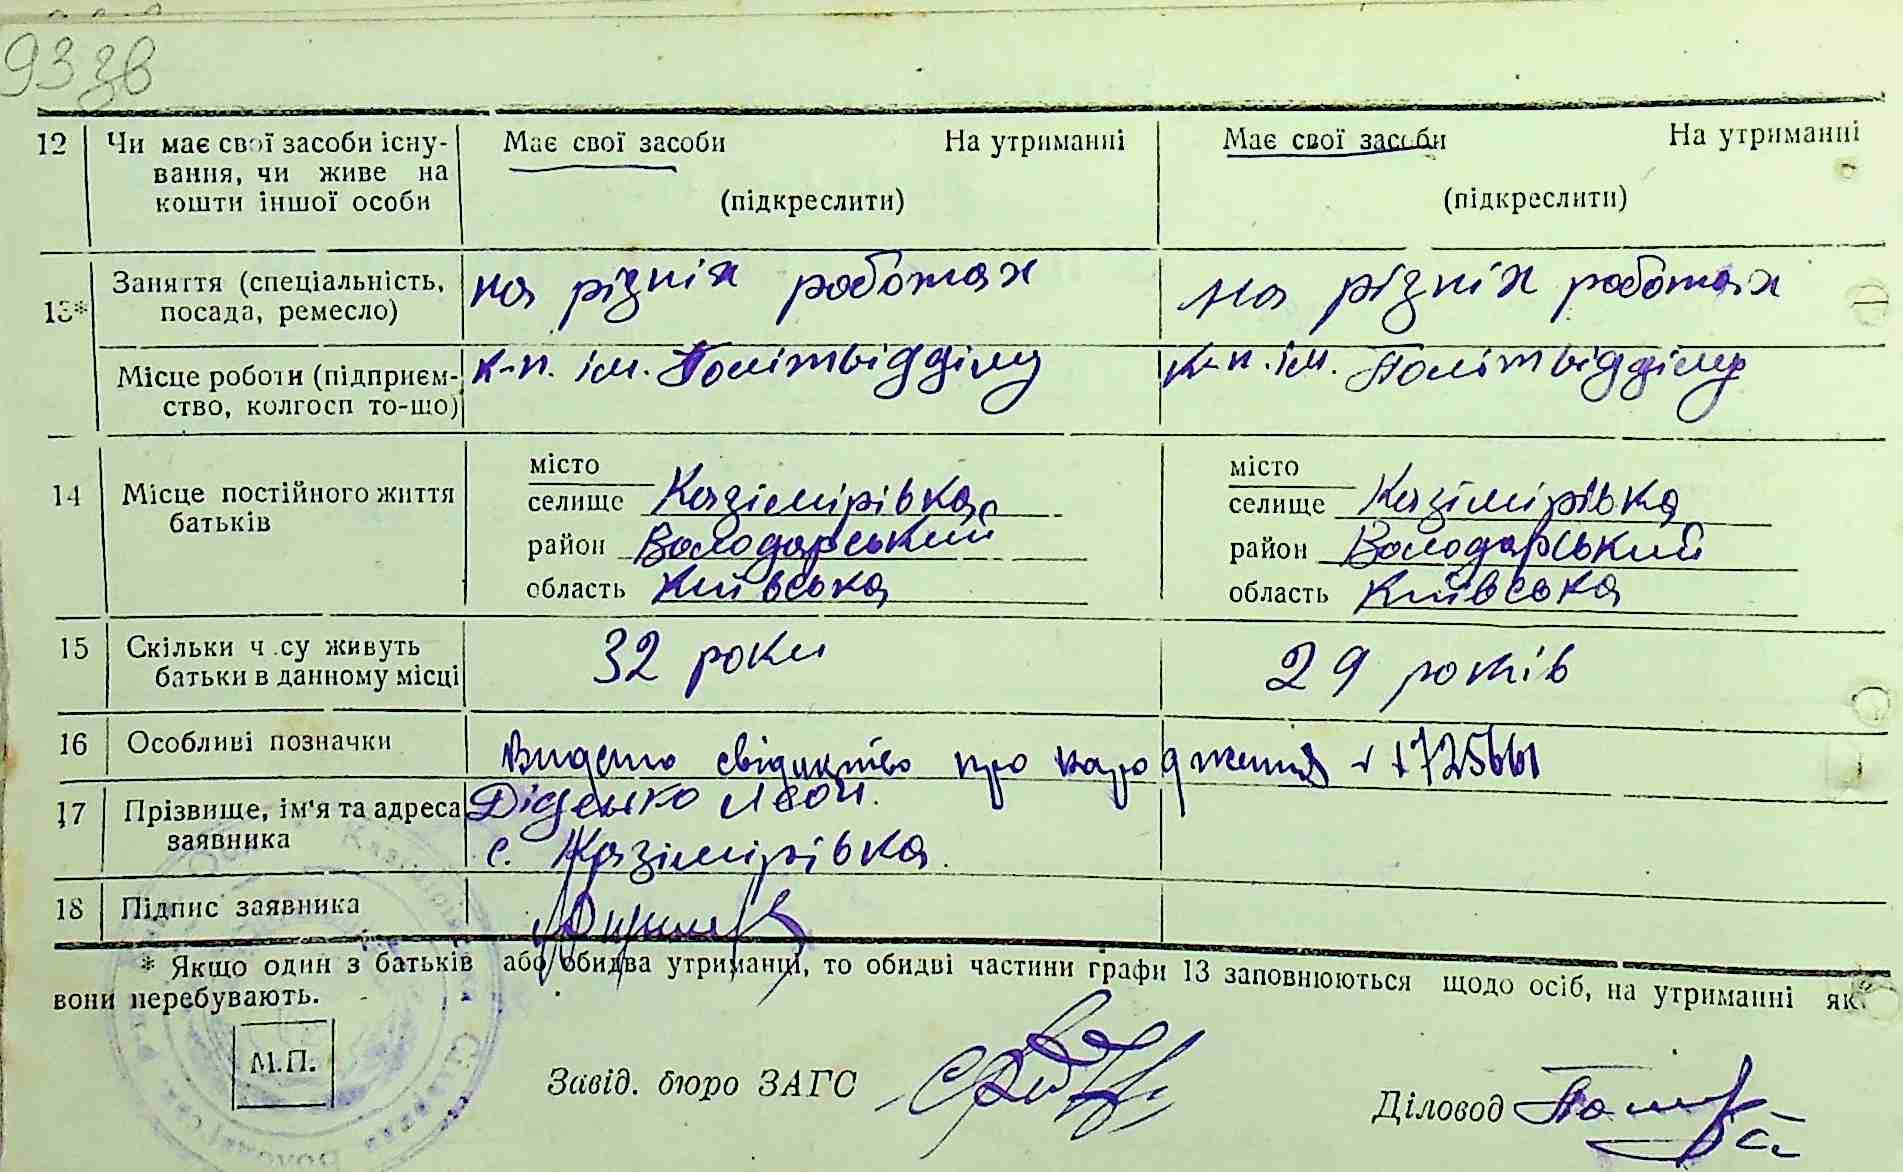 93 зв
12 Чи має свої засоби існу- Має свої засоби На утриманні Має свої засоби На утриманні
вання, чи живе на
кошти іншої особи (підкреслити) (підкреслити)
13* Заняття (спеціальність, на різніх роботах на різніх роботах
посада, ремесло)
Місце роботи (підприєм- к-п. ім. Політвідділу к-п. ім. Політвідділу
ство, колгосп то-що)
14 Місце постійного життя місто місто
батьків селище Казімірівка селище Казімірівка
район Володарський район Володарський
область Київська область Київська
15 Скільки ч су живуть 32 роки 29 років
батьки в данному місці
16 Особливі позначки Видано свідитство про народження
17 Прізвище, ім'я та адреса Діденко Леон.
заявника с. Казімірівка.
18 Підпис заявника
* Якщо один з батьків або обидва утриманці, то обидві частини графи 13 заповнюються щодо осіб, на утриманні яких
вони перебувають.
М.П. Завід. бюро ЗАГС Діловод